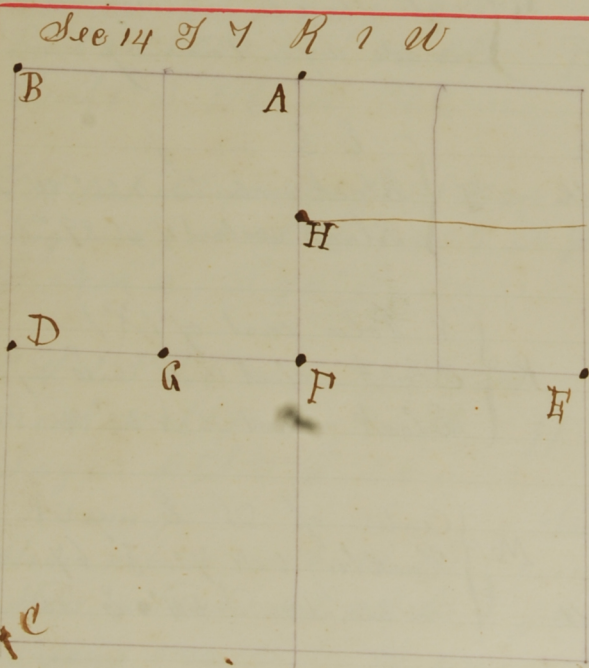 Sec 14 T 7 R 1 W
B
A
H
D
G
F
E
C